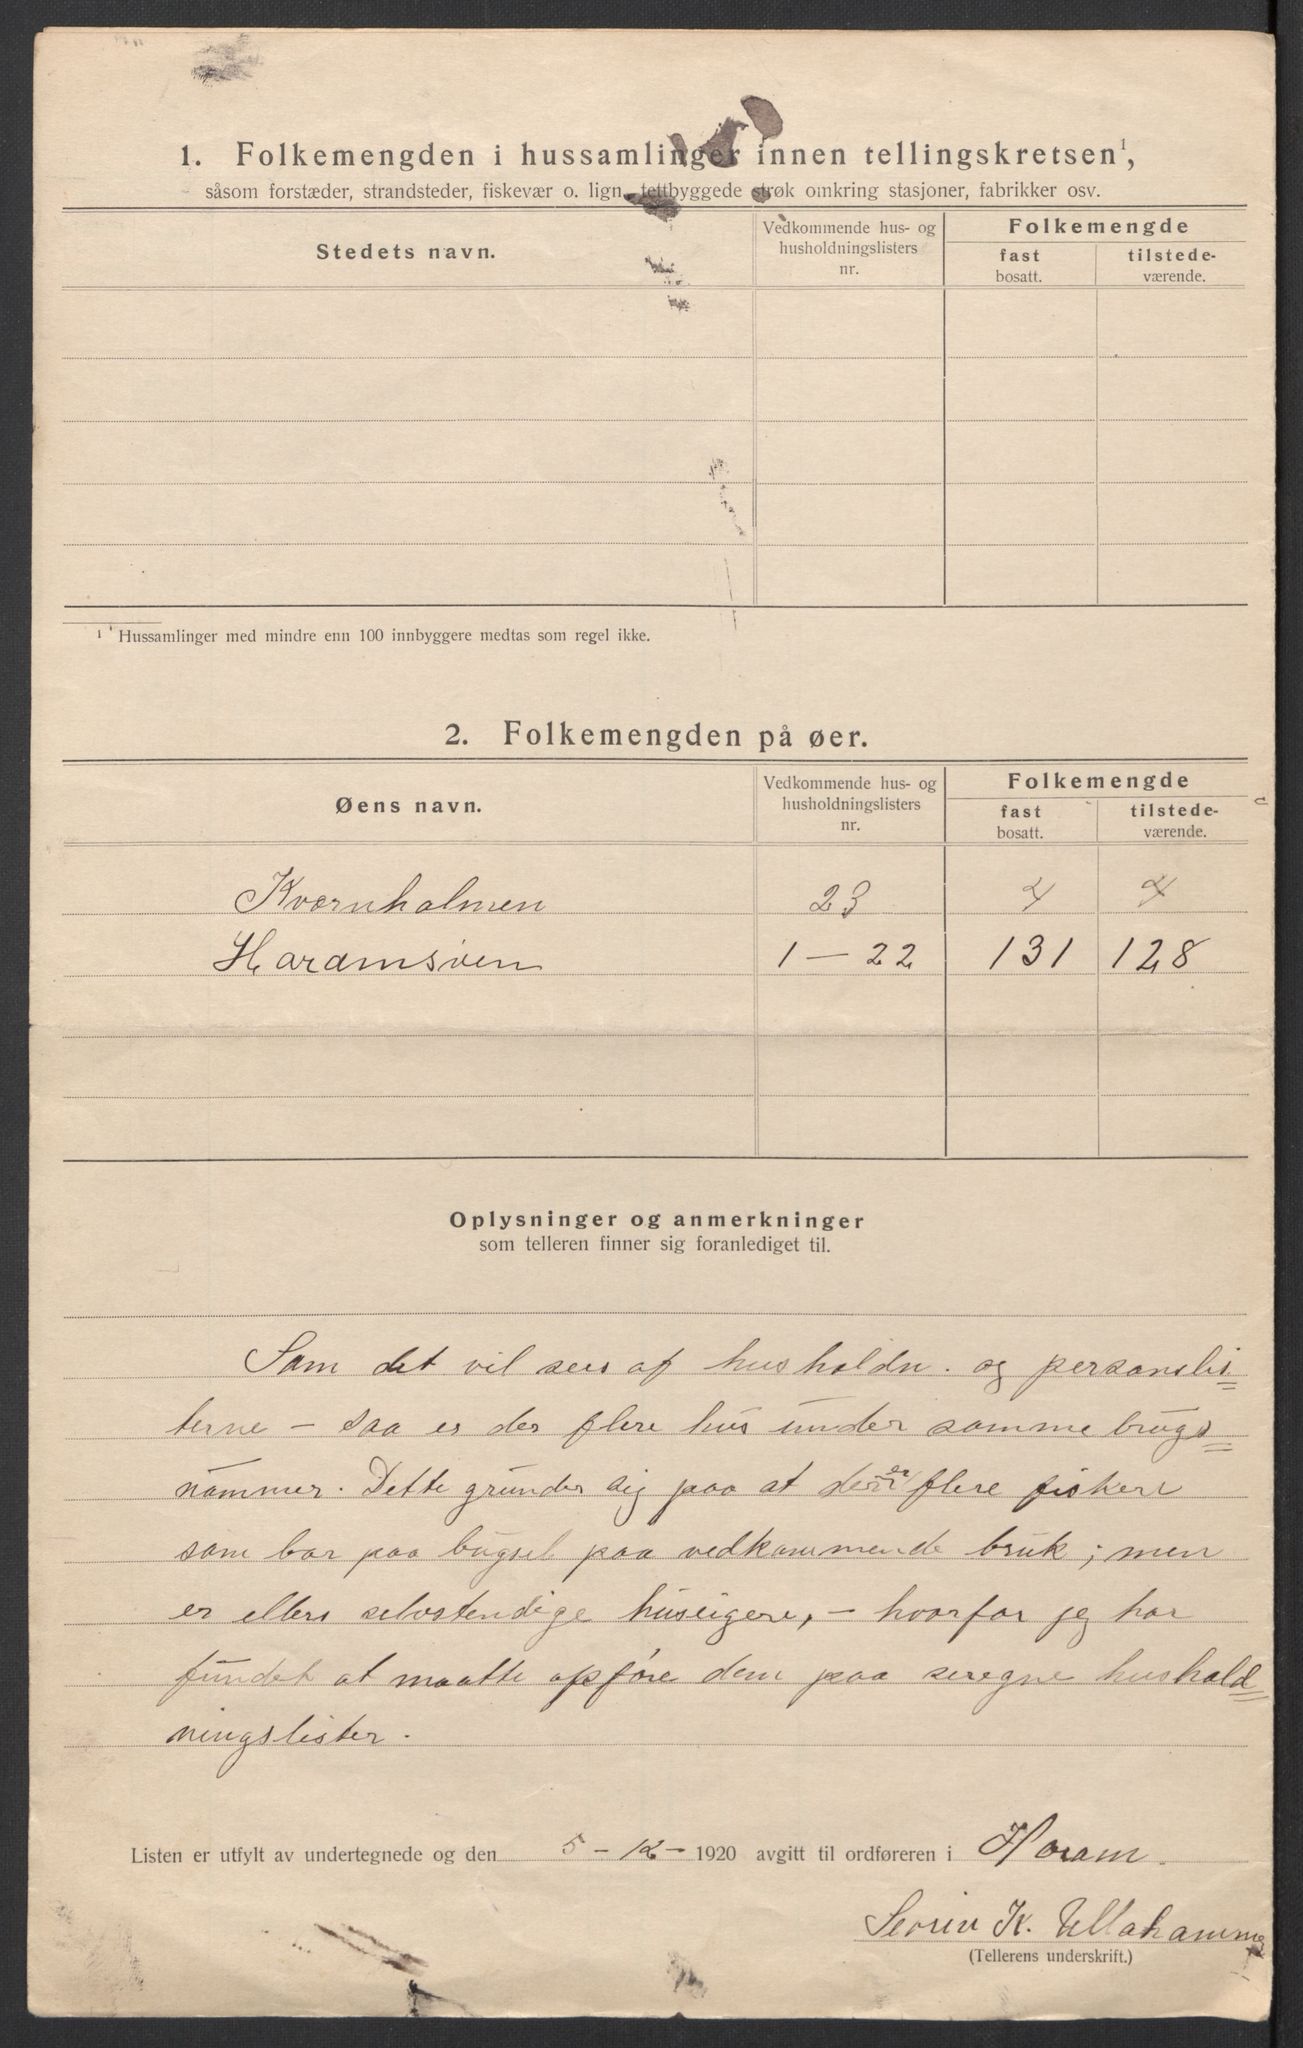 1. Folkemengden i hussamlinger innen tellingskretsen¹,
såsom forstæder, strandsteder, fiskevær o. lign. tettbyggede strøk omkring stasjoner, fabrikker osv.
Stedets navn.
Vedkommende hus- og
husholdningslisters
nr.
Folkemengde
fast
bosatt.
tilstede-
værende.
¹ Hussamlinger med mindre enn 100 innbyggere medtas som regel ikke.
2. Folkemengden på øer.
Øens navn.
Vedkommende hus- og
husholdningslisters
nr.
Folkemengde
fast
bosatt.
tilstede-
værende.
Kvernholmen 23 4 4
Haramsöen 1 — 22 131 128
Oplysninger og anmerkninger
som telleren finner sig foranlediget til.
Som det vil sees af husholdn. og personslis=
terne – saa er der flere hus under samme brugs=
nummer. Dette grunder sig paa at der er flere fiskere
som bor paa bugsel paa vedkommende bruk; men
er ellers selvstendige huseigere, – hvorfor jeg har
fundet at maatte opføre dem paa seregne hushold=
ningslister.
Listen er utfylt av undertegnede og den 5 – 12 – 1920 avgitt til ordføreren i Haram.
Sevrin K. Ullahammer
(Tellerens underskrift.)